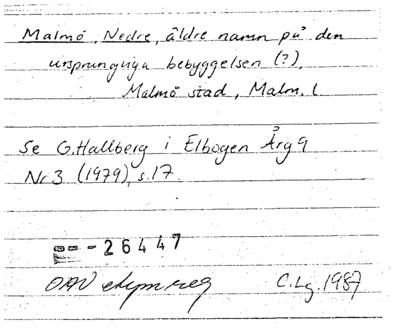 Malmö, Nedre, äldre namn på den
ursprungliga bebyggelsen (?),
Malmö stad, Malm. l
Se G. Hallberg i Elbogen Årg 9
Nr 3 (1979), s. 17.
- 26447
OAU C.Lg. 1987